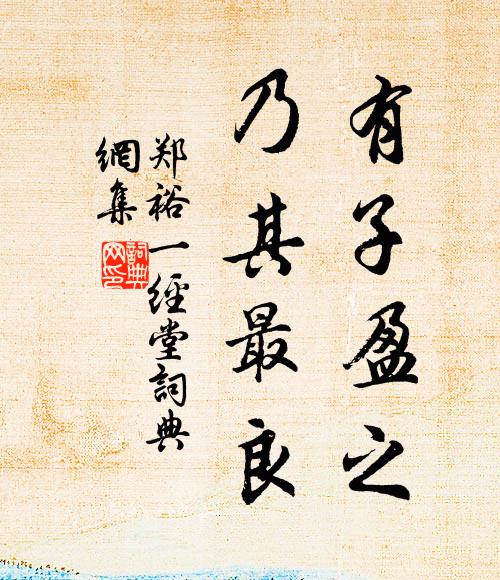 有子盈之
乃其最良
郑裕一經堂詞典
網集
詞典網印